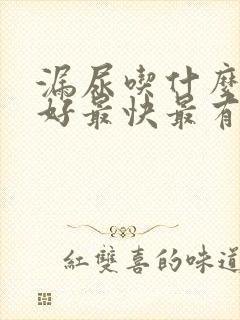 漏尿喫什麼
好最快最有
紅雙喜的味道